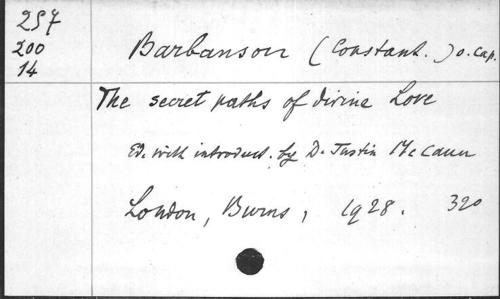 257
200
14
Barbanson (Constant.) o. cap.
The secret paths of divine Love
Ed. with introduct. by D. Justin McCann
London, Burns, 1928. 320